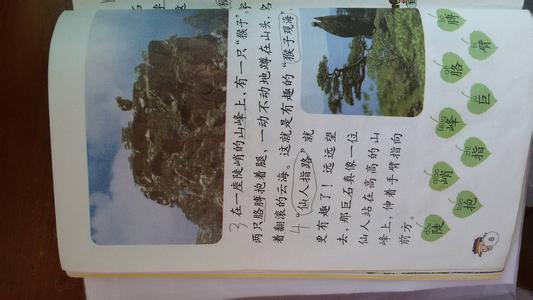 3 在一座陡峭的山峰上，有一只“猴子”，它
两只胳膊抱着腿，一动不动地蹲在山头，望
着翻滚的云海。这就是有趣的“猴子观海”。
4 “仙人指路”就
更有趣了！远远望
去，那巨石真像一位
仙人站在高高的山
峰上，伸着手臂指向
前方。
陡
抱
峭
指
峰
巨
胳
臂
膊
8